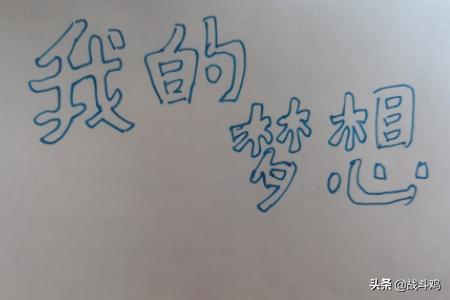 我的
梦想
头条 @战斗鸡